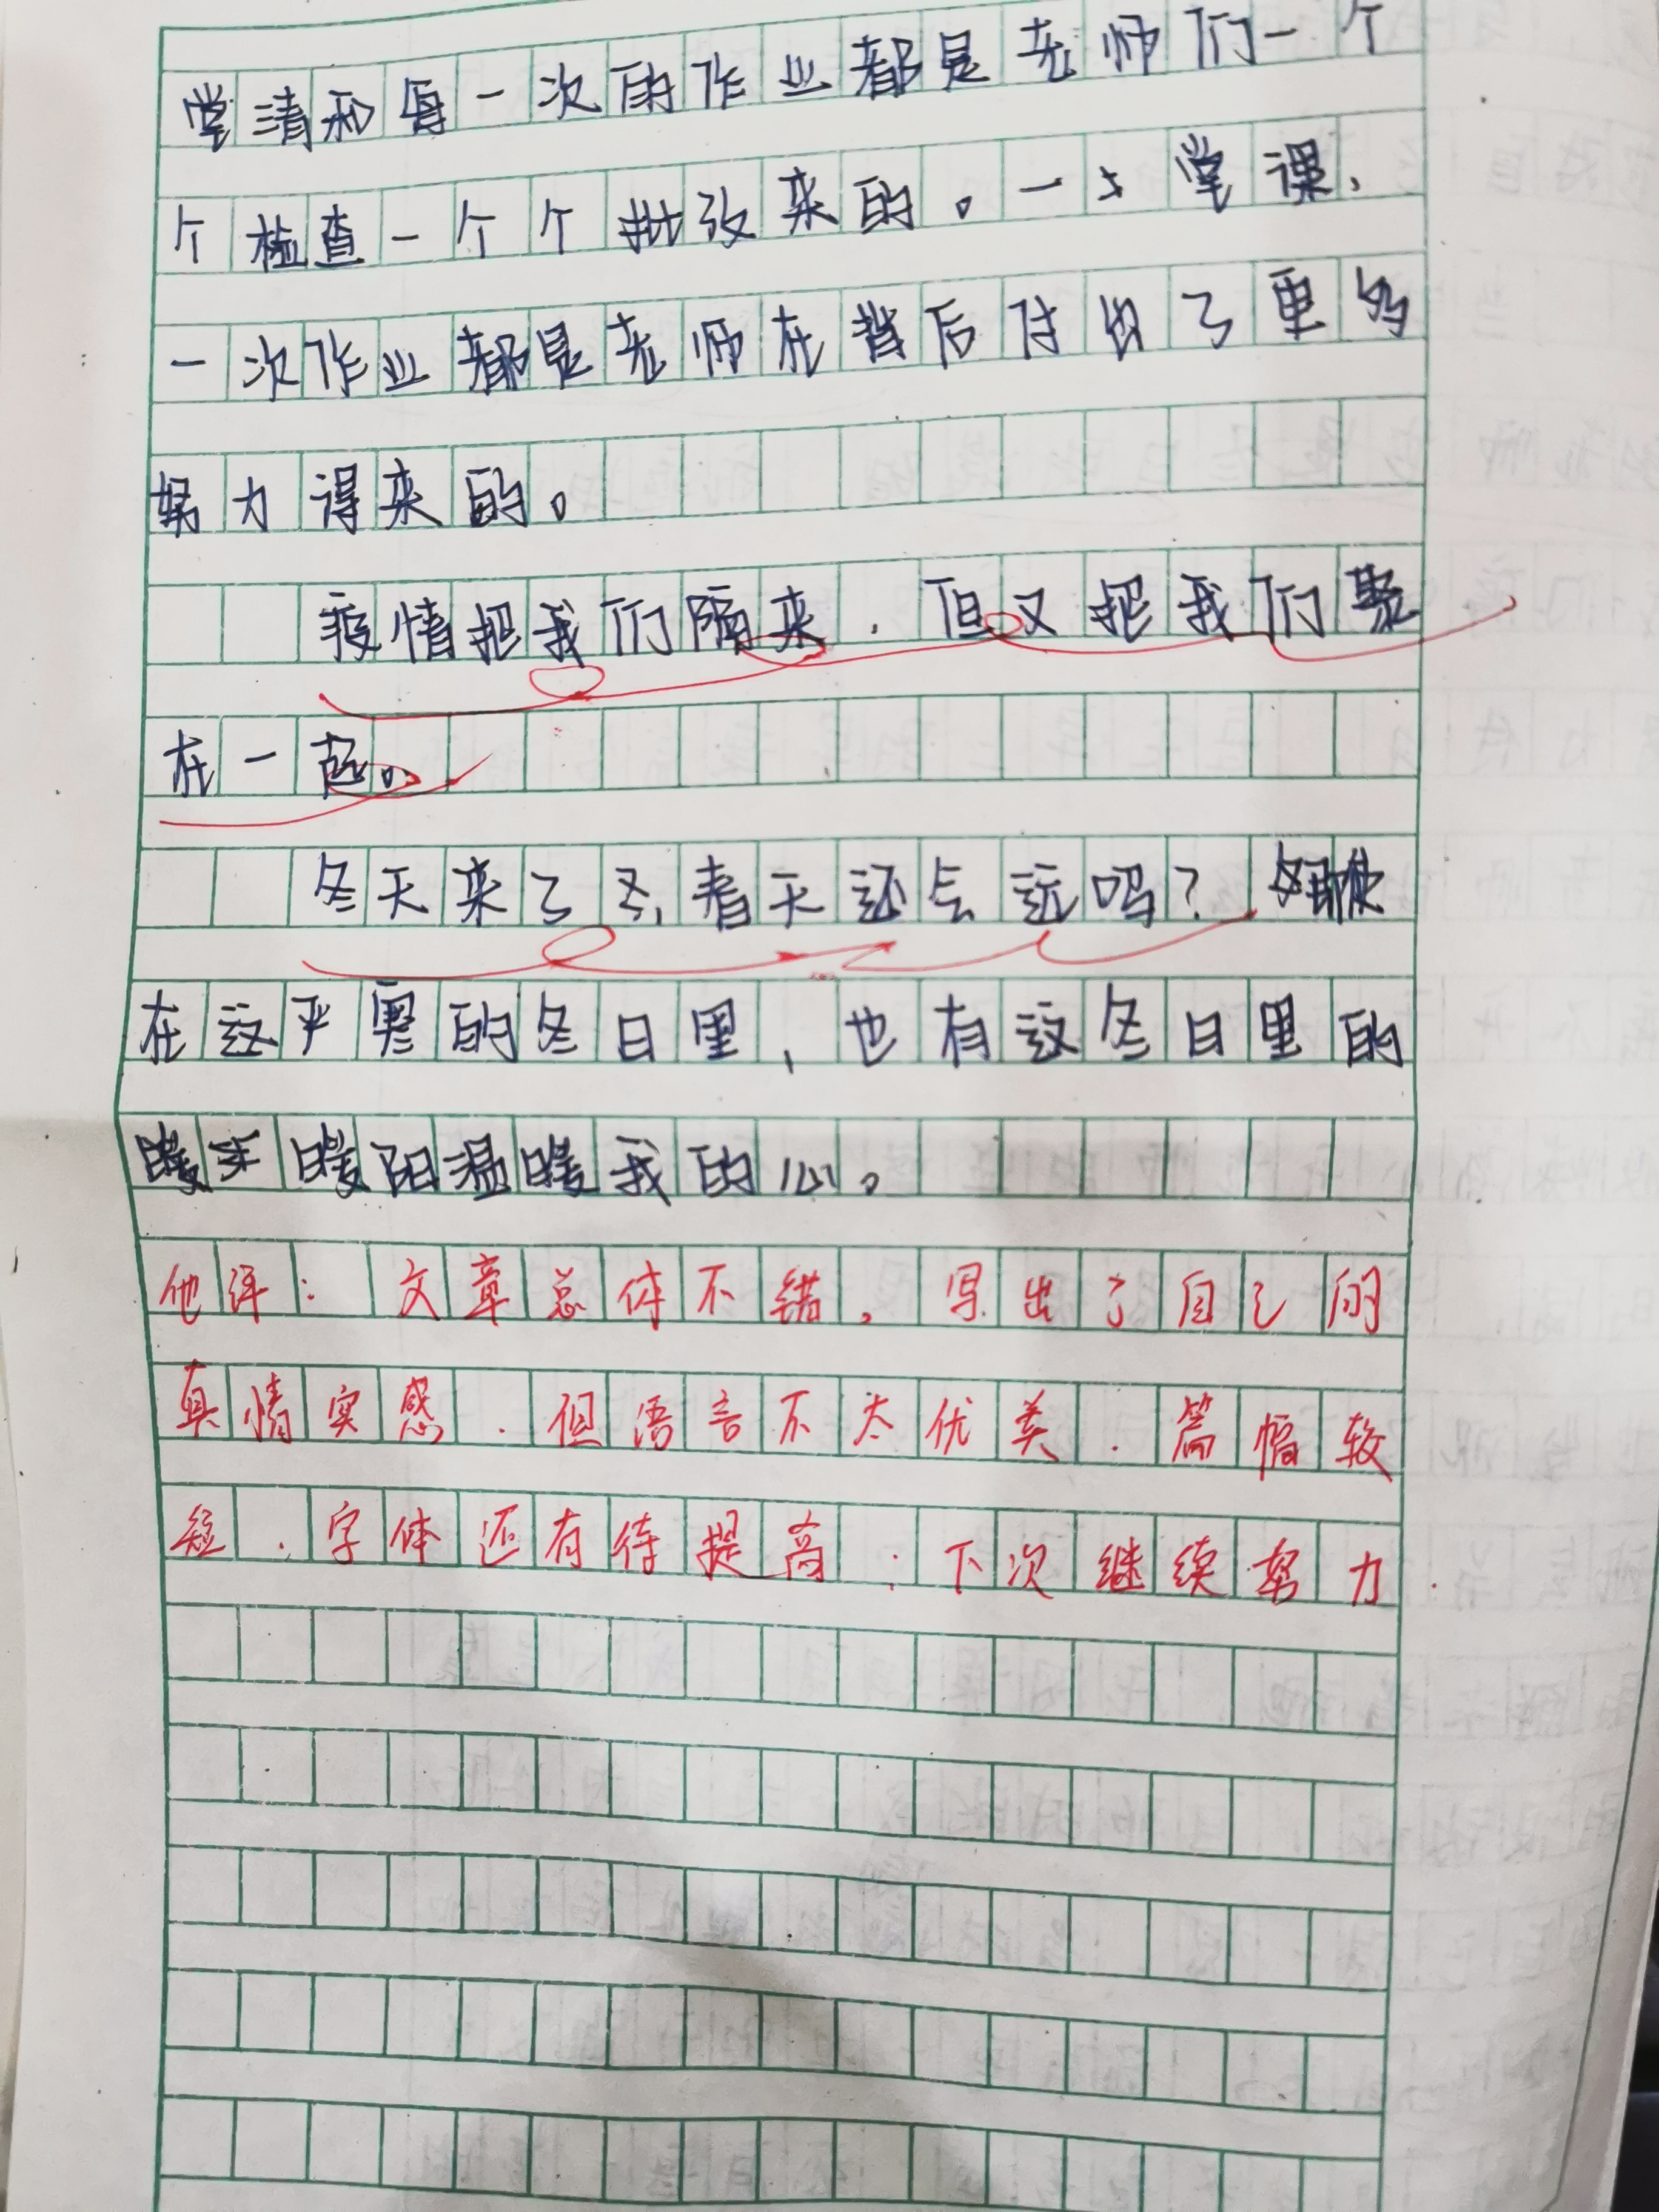 堂清和每一次的作业都是老师们一个
个检查一个个批改来的。一堂课、
一次作业都是老师在背后付出了更多
努力得来的。
疫情把我们隔来，但又把我们聚
在一起。
冬天来了，春天还会远吗？
在这严寒的冬日里，也有这冬日里的
暖阳温暖我的心。
他评：文章总体不错，写出了自己的
真情实感．但语言不太优美．篇幅较
短．字体还有待提高．下次继续努力．